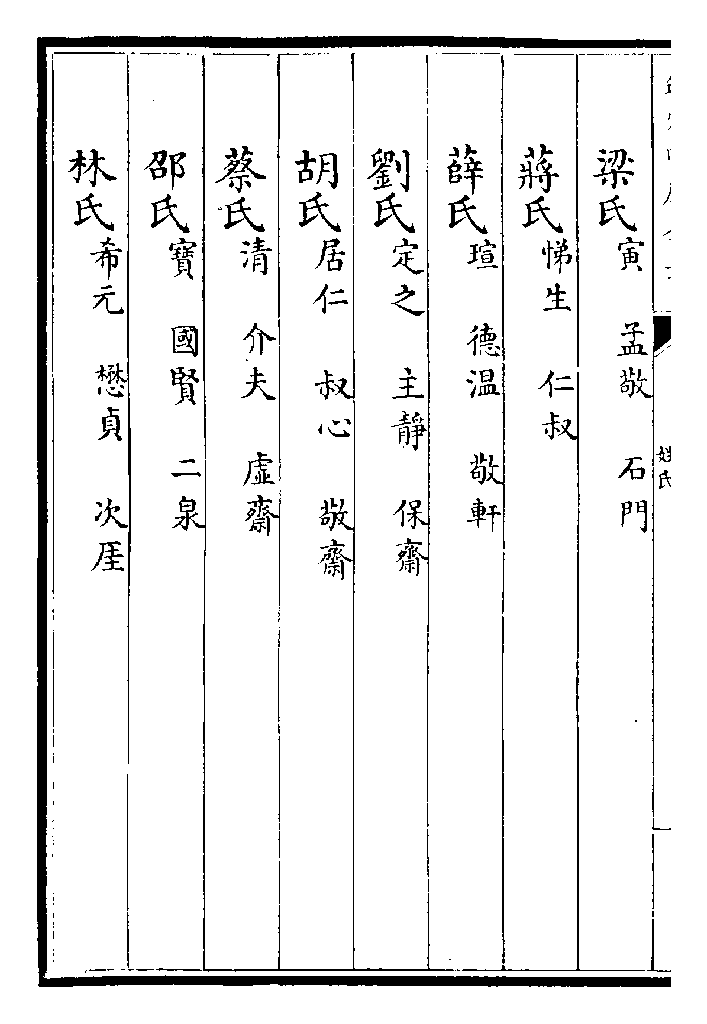 梁氏寅 孟敬 石門
蔣氏悌生 仁叔
薛氏瑄 德温 敬軒
劉氏定之 主靜 保齋
胡氏居仁 叔心 敬齋
蔡氏清 介夫 虛齋
邵氏寶 國賢 二泉
林氏希元 懋貞 次厓
姓氏